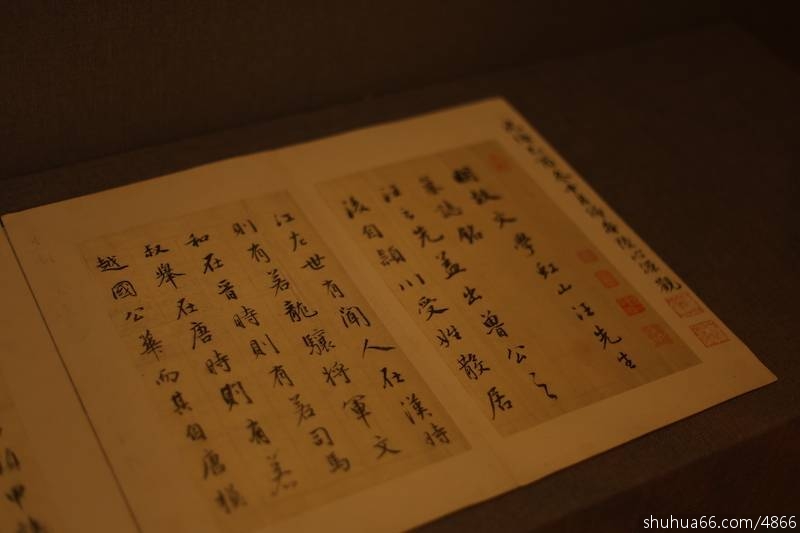 陸心源觀
故文學虹山汪先生
墓誌銘
汪之先蓋出魯公之
後自潁川受姓散居
江左世有聞人在漢時
則有若龍驤將軍文
和在晉時則有若司馬
叔舉在唐時則有若
越國公華而其自唐模
shuhua66.com/4866